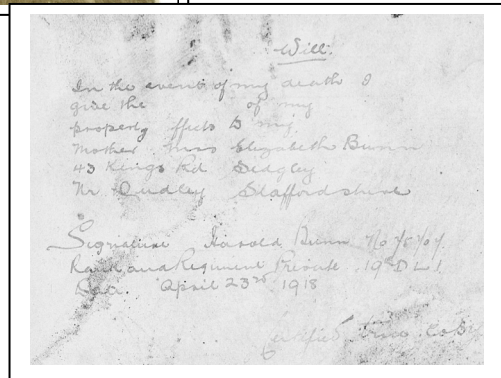 Will.
In the event of my death I
give the of my
property effects to my
Mother Mrs Elizabeth Bunn
43 Kings Rd Sedgley
Nr Dudley Staffordshire
Signature Harold Bunn
Rank and Regiment Private 19 D L I
Date April 23rd 1918
Certified true copy